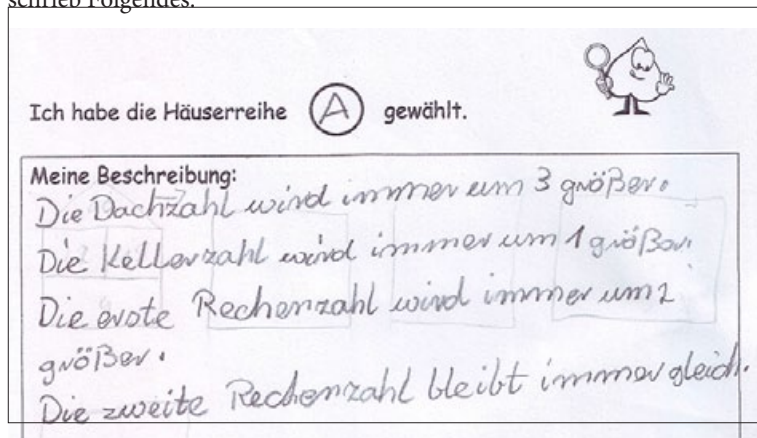 schrieb Folgendes:
Ich habe die Häuserreihe A gewählt.
Meine Beschreibung:
Die Dachzahl wird immer um 3 größer.
Die Kellerzahl wird immer um 1 größer.
Die erste Rechenzahl wird immer um 1
größer.
Die zweite Rechenzahl bleibt immer gleich.